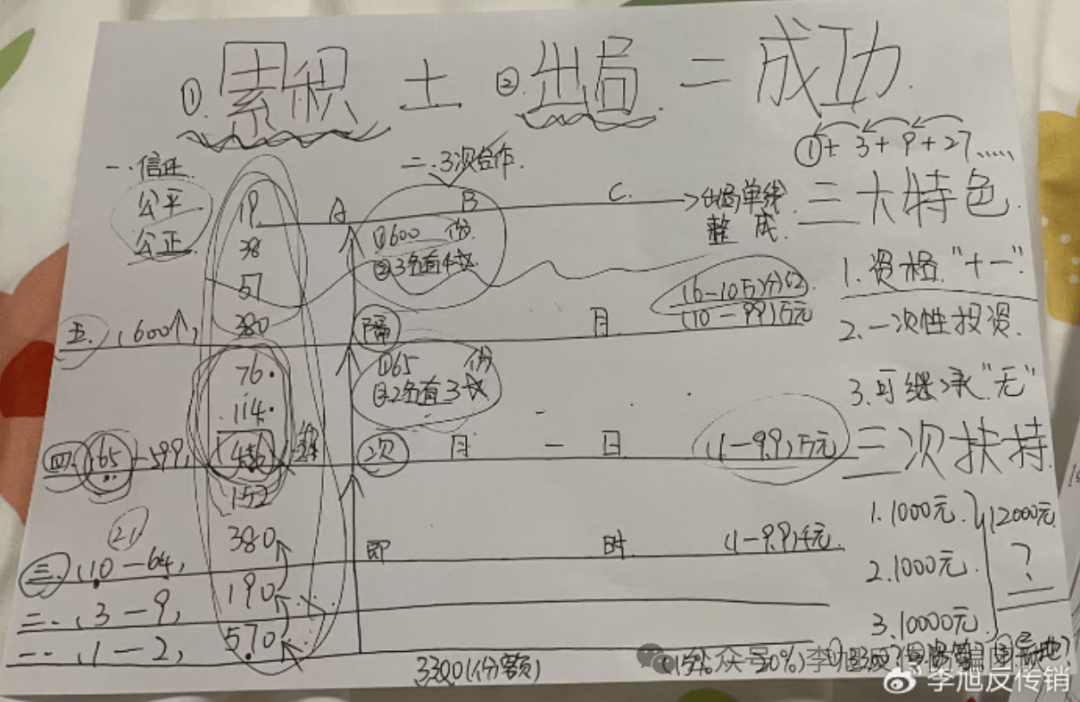 ①累积 ± ②出局 = 成功
①+3+9+27......
一.信任
公平
公正
二.3次合作
A B C
出局单线
整成
三大特色
1.资格"十一"
2.一次性投资
3.可继承"无"
19
38
57
380
①600份
②3条直
(6-10万)
(10-99)万元
五、(600个)
隔 月
76.
114.
456
①65份
②2条直3
四、(65-599)
次 月 一 日
(1-9.9)万元
三次扶持
152
380
190
570
21
三、(10-64)
即 时
(1-9.9)千元
二、(3-9)
一、(1-2)
1.1000元
2.1000元
3.10000元
12000元
?
3300(份额)
(15% 20%)
李旭反传销